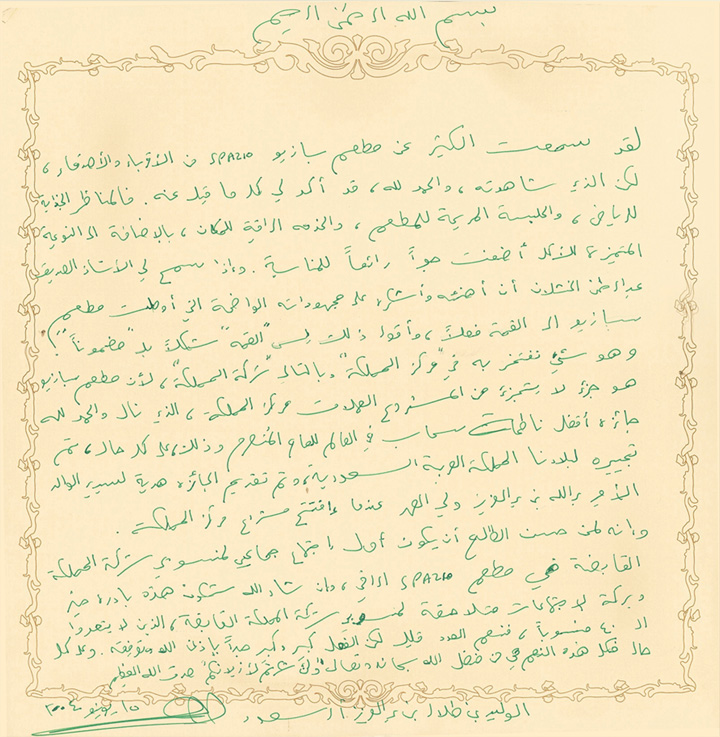 بسم الله الرحمن الرحيم
لقد سمعت الكثير عن مطعم سبازيو SPAZIO من الأقرباء والأصدقاء،
لكن الذي شاهدته، والحمد لله، قد أكد لي كل ما قيل عنه. فالمناظر الجذابة
للرياض، والجلسة المريحة للمطعم، والخدمة الراقية للمكان، بالإضافة الى النوعية
المتميزة للأكل أضفت جواً رائعاً للمناسبة. وإذا سمح لي الأستاذ الصديق
عبدالرحمن الخثلان أن أهنئه وأشكره على مجهوداته الواضحة التي أوصلت مطعم
سبازيو الى القمة فعلاً، وأقول ذلك ليس "القمة" شكلاً بل "مضموناً"!
وهو شيئ نفتخر به في "مركز المملكة" وبالتالي "شركة المملكة"، لأن مطعم سبازيو
هو جزء لا يتجزء من المشروع العملاق مركز المملكة، الذي نال والحمد لله
جائزة أفضل ناطحات سحاب في العالم للعام المنصرم وذلك على كل حال، تم
تجييره لبلادنا المملكة العربية السعودية، وتم تقديم الجائزة هدية لسيدي الوالد
الأمير عبدالله بن عبدالعزيز ولي العهد عندما افتتح مشروع مركز المملكة.
وانه لمن حسن الطالع أن يكون أول إجتماع جماعي لمنسوبي شركة المملكة
القابضة في مطعم SPAZIO الراقي، وان شاء الله ستكون هذه بادرة خير
وبركة لاجتماعات متلاحقة لمنسوبي شركة المملكة القابضة، الذين لا يتعدوا
الـ منسوباً، فنعم العدد قليل لكن الفعل كبير وكبير جداً بإذن الله وبتوفيقه. وعلى كل
حال فكل هذه النعم هي من فضل الله سبحانه وتعالى "ولئن شكرتم لأزيدنكم" صدق الله العظيم
الوليد بن طلال بن عبدالعزيز آل سعود
١٥ يونيو ٢٠٠٤